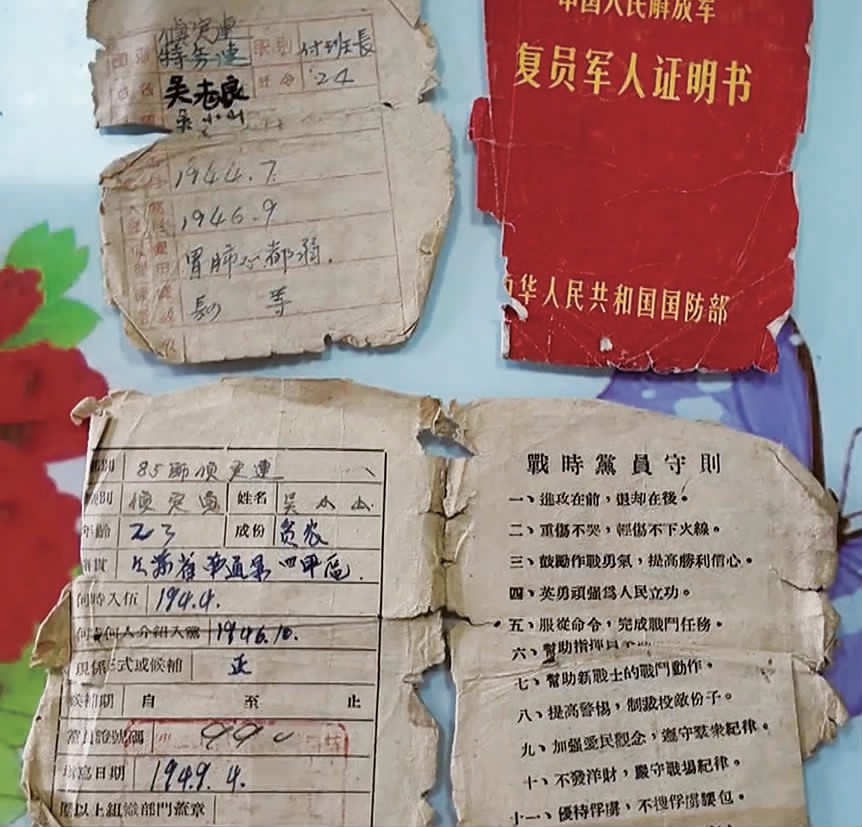 偵察連
特务連 职别 付班長
吴志良 年令 24
吴小山
1944.7
1946.9
胃肺心都弱.
中国人民解放军
复员军人证明书
华人民共和国国防部
別 85師偵察連
別 姓名 吴小山
年齡 23 成份 贫农
四甲區
何時入伍 194.4.
何人介紹入黨 1946.10.
現係正式或候補 正
候補期 自 至 止
黨員證號碼
填寫日期 1949.4.
團以上組織部門蓋章
戰時黨員守則
一、進攻在前，退却在後。
二、重傷不哭，輕傷不下火線。
三、鼓勵作戰勇氣，提高勝利信心。
四、英勇頑强爲人民立功。
五、服從命令，完成戰鬥任務。
六、幫助指揮員
七、幫助新戰士的戰鬥動作。
八、提高警惕，制裁投敵份子。
九、加强愛民觀念，遵守羣衆紀律。
十、不發洋財，嚴守戰場紀律。
十一、優待俘虜，不搜俘虜腰包。